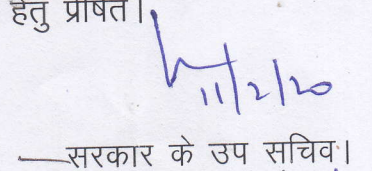 हेतु प्रेषित।
11/2/20
सरकार के उप सचिव।